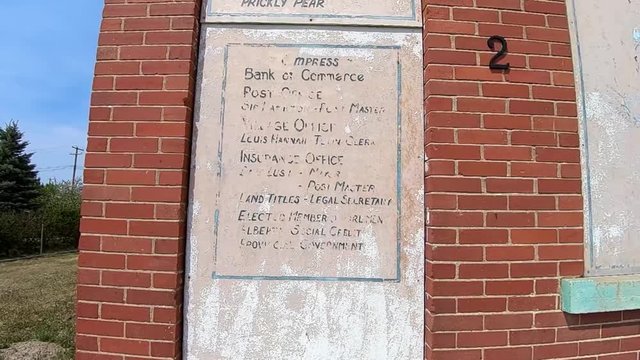 PRICKLY PEAR
EMPRESS
Bank of Commerce
POST OFFICE
- POST MASTER
VILLAGE OFFICE
LOUIS HANNAH TOWN CLERK
INSURANCE OFFICE
- POST MASTER
LAND TITLES - LEGAL SECRETARY
ELECTED MEMBER
ALBERTA SOCIAL CREDIT
PROVINCIAL GOVERNMENT
2